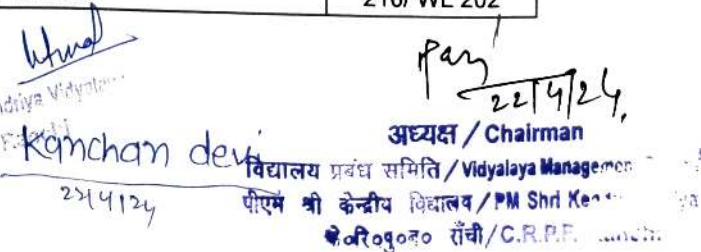 216/ WE 202
22/4/24
Kendriya Vidyalaya
Kanchan devi
22/4/24
अध्यक्ष / Chairman
विद्यालय प्रबंध समिति / Vidyalaya Managemen
पीएम श्री केन्द्रीय विद्यालय / PM Shri Ken
के०रि०पु०ब० राँची / C.R.P.F.